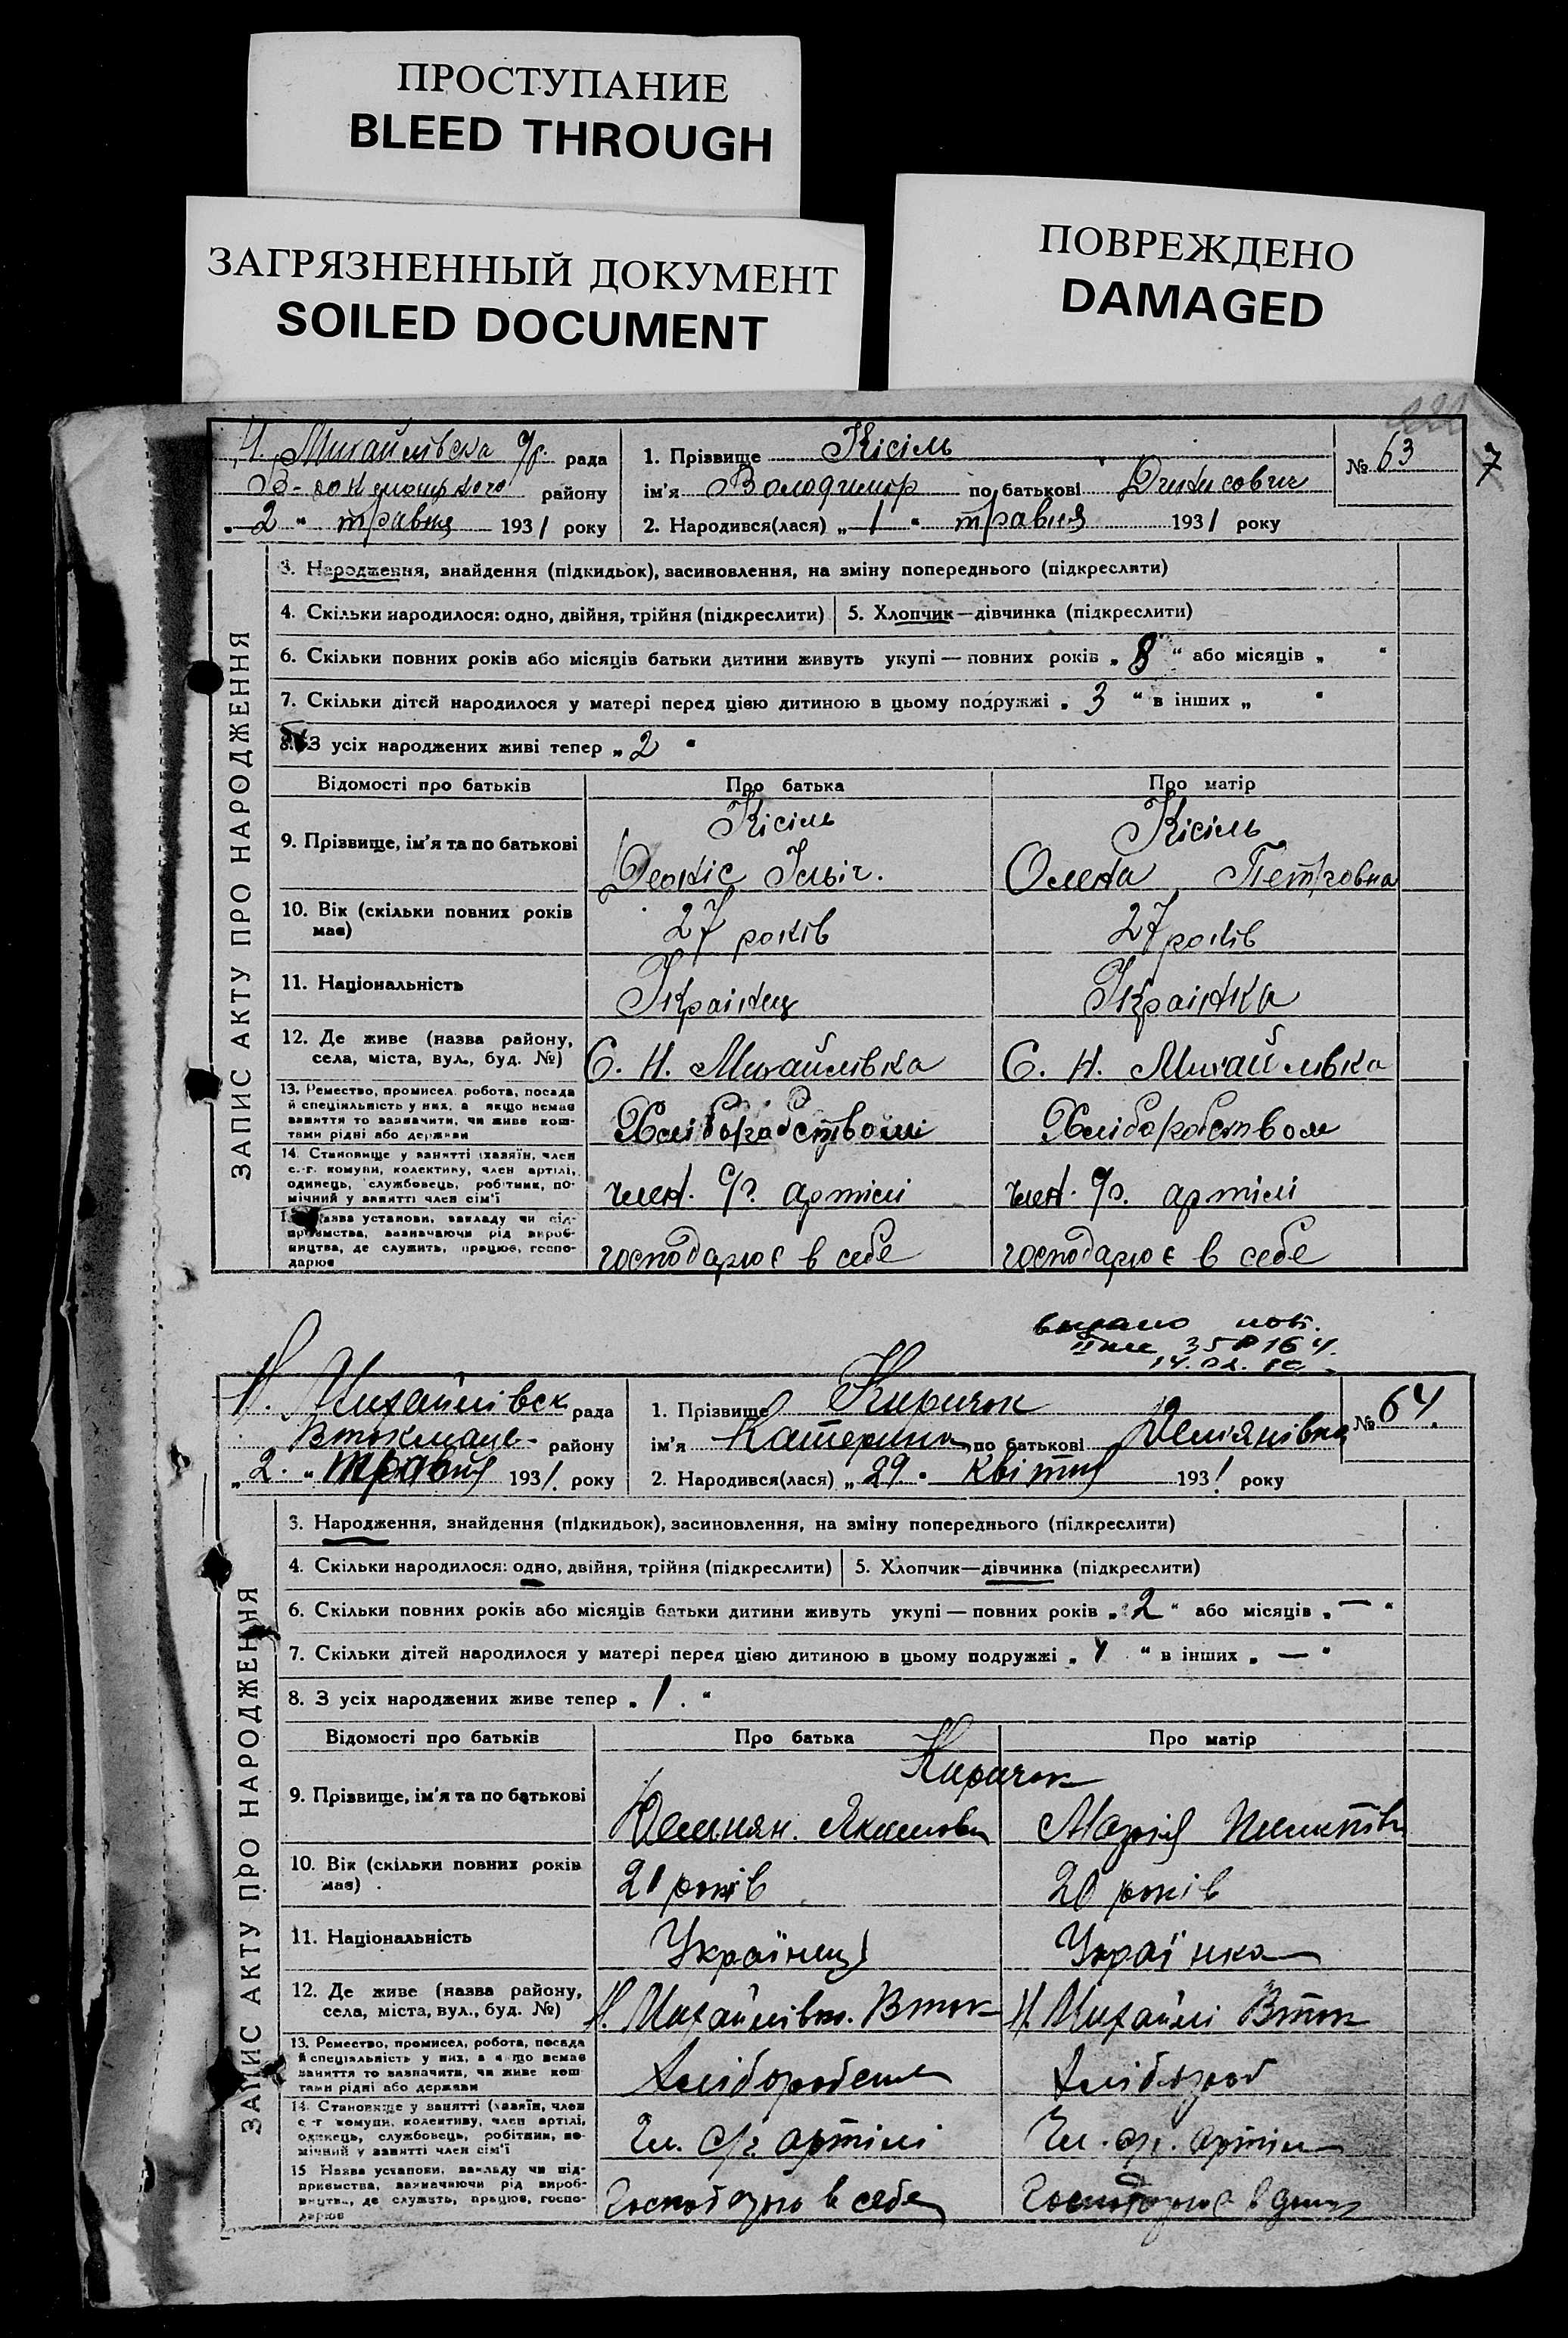 ПРОСТУПАНИЕ
BLEED THROUGH
ЗАГРЯЗНЕННЫЙ ДОКУМЕНТ
SOILED DOCUMENT
ПОВРЕЖДЕНО
DAMAGED
7
Н. Михайлівська с/г. рада
району
„ 2 “ травня 1931 року
1. Прізвище Кісіль
ім'я Володимир по батькові Денисович
2. Народився(лася) „ 1 “ травня 1931 року
№ 63
ЗАПИС АКТУ ПРО НАРОДЖЕННЯ
3. Народження, знайдення (підкидьок), засиновлення, на зміну попереднього (підкреслити)
4. Скільки народилося: одно, двійня, трійня (підкреслити) 5. Хлопчик—дівчинка (підкреслити)
6. Скільки повних років або місяців батьки дитини живуть укупі — повних років „ 8 “ або місяців „ “
7. Скільки дітей народилося у матері перед цією дитиною в цьому подружжі „ 3 “ в інших „ “
8. З усіх народжених живі тепер „ 2 “
Відомості про батьків Про батька Про матір
9. Прізвище, ім'я та по батькові
Кісіль Кісіль
Деоніс Ільіч. Олена Петровна
10. Вік (скільки повних років має) 27 років 27 років
11. Національність Украінец Украінка
12. Де живе (назва району, села, міста, вул., буд. №) С. Н. Михайлівка С. Н. Михайлівка
13. Ремество, промисел, робота, посада
й спеціяльність у них, а якщо немає
заняття то зазначити, чи живе кош-
тами рідні або держави
Хліборобством Хліборобством
14. Становище у занятті (хазяїн, член
с.-г. комуни, колективу, член артілі,
одинець, службовець, робітник, по-
мічний у занятті член сім'ї
член. с/г. артілі член. с/г. артілі
15. Назва установи, закладу чи під-
приємства, зазначаючи рід вироб-
ництва, де служить, працює, госпо-
дарює
господарює в себе господарює в себе
выдано пов.
14.02.
Н. Михайлівск рада
Втокмац- району
„ 2. “ травня 1931. року
1. Прізвище Киричок
ім'я Катерина по батькові Деміянівна
2. Народився(лася) „ 29 “ квітня 1931 року
№ 64.
ЗАПИС АКТУ ПРО НАРОДЖЕННЯ
3. Народження, знайдення (підкидьок), засиновлення, на зміну попереднього (підкреслити)
4. Скільки народилося: одно, двійня, трійня (підкреслити) 5. Хлопчик—дівчинка (підкреслити)
6. Скільки повних років або місяців батьки дитини живуть укупі — повних років „ 2 “ або місяців „ — “
7. Скільки дітей народилося у матері перед цією дитиною в цьому подружжі „ “ в інших „ — “
8. З усіх народжених живе тепер „ 1. “
Відомості про батьків Про батька Про матір
9. Прізвище, ім'я та по батькові
Киричок
Демиян. Якимович Марія
10. Вік (скільки повних років має) 21 років 20 років
11. Національність Українець Українка
12. Де живе (назва району, села, міста, вул., буд. №) Н. Михайлівк. Вток Н. Михайлі Вток
13. Ремество, промисел, робота, посада
й спеціяльність у них, а якщо немає
заняття то зазначити, чи живе кош-
тами рідні або держави
Хлібороб
14. Становище у занятті (хазяїн, член
с.-г. комуни, колективу, член артілі,
одинець, службовець, робітник, по-
мічний у занятті член сім'ї
Чл. с/г артілі Чл. с/г. артілі
15 Назва установи, закладу чи під-
приємства, зазначаючи рід вироб-
ництва, де служить, працює, госпо-
дарює
в себе